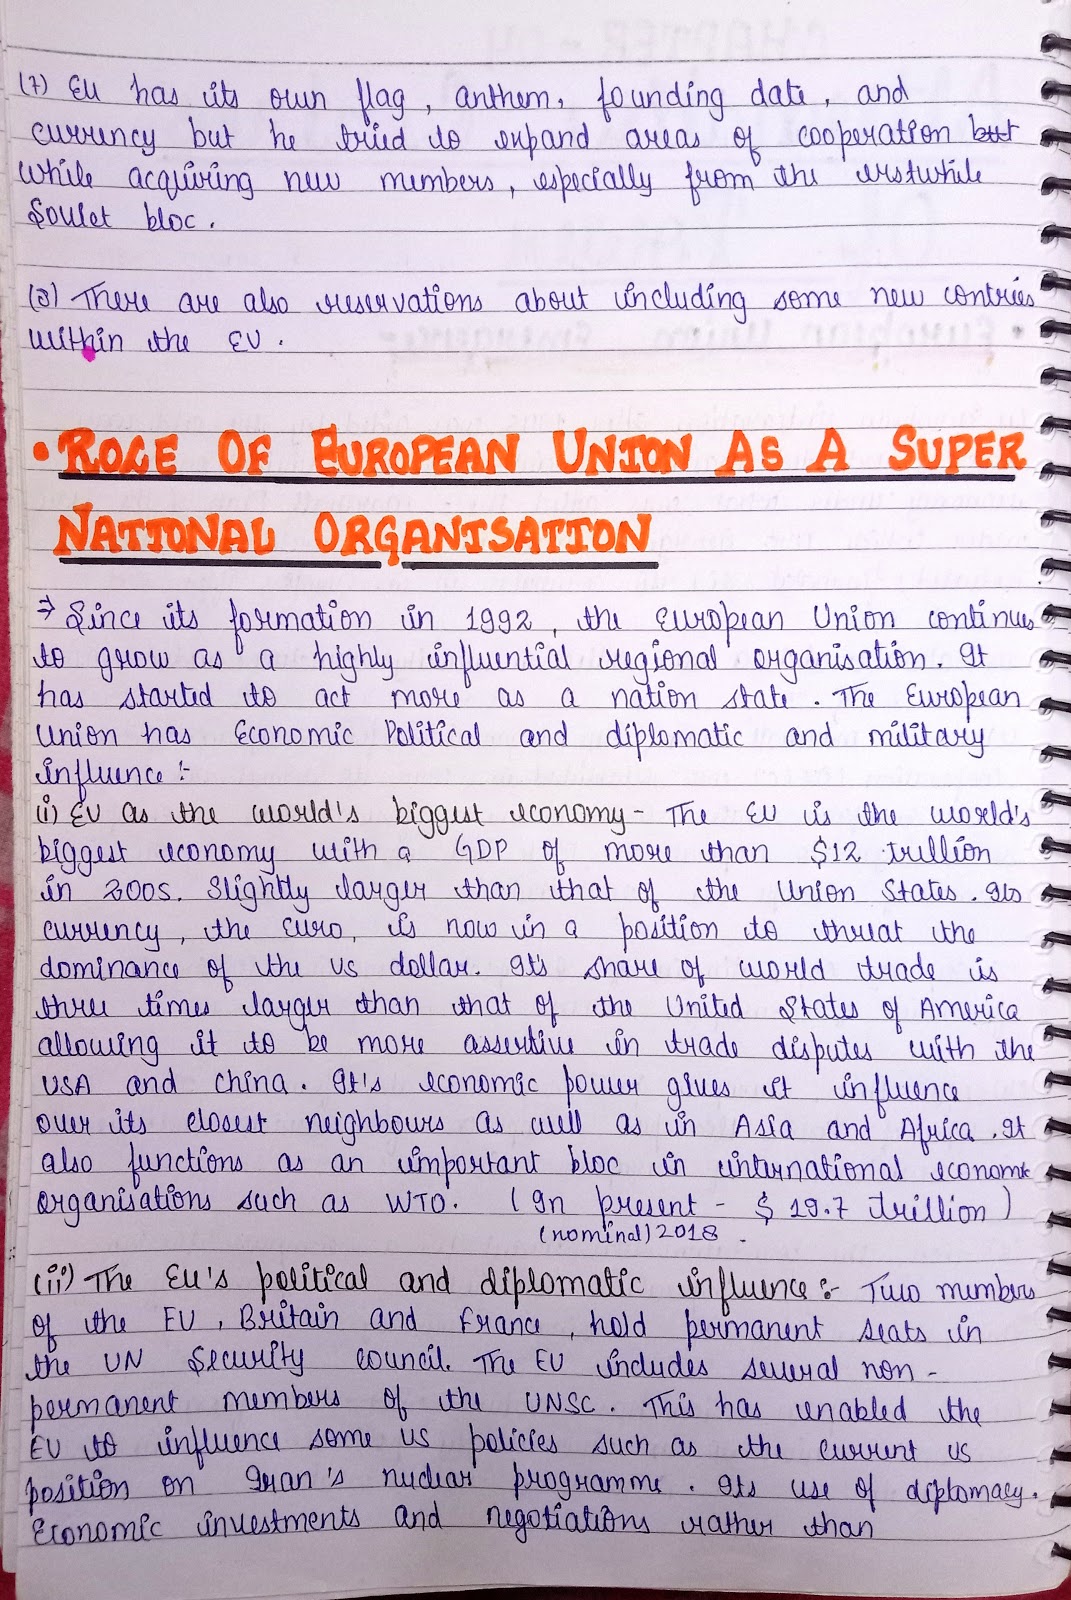 (7) EU has its own flag, anthem, founding date, and
currency but he tried to expand areas of cooperation but
while acquiring new members, especially from the erstwhile
Soviet bloc.
(8) There are also reservations about including some new contries
within the EU.
• ROLE OF EUROPEAN UNION AS A SUPER
NATIONAL ORGANISATION
⇒ Since its formation in 1992, the European Union continues
to grow as a highly influential regional organisation. It
has started to act more as a nation state. The European
Union has Economic Political and diplomatic and military
influence :-
(i) EU as the world's biggest economy - The EU is the world's
biggest economy with a GDP of more than $12 trillion
in 2005. Slightly larger than that of the Union States. Its
currency, the Euro, is now in a position to threat the
dominance of the US dollar. It's share of world trade is
three times larger than that of the United States of America
allowing it to be more assertive in trade disputes with the
USA and China. It's economic power gives it influence
over its closest neighbours as well as in Asia and Africa. It
also functions as an important bloc in international economic
organisations such as WTO. (In present - $ 19.7 trillion)
(nominal) 2018.
(ii) The EU's political and diplomatic influence :- Two members
of the EU, Britain and France, hold permanent seats in
the UN Security council. The EU includes several non-
permanent members of the UNSC. This has enabled the
EU to influence some US policies such as the current US
position on Iran's nuclear programme. Its use of diplomacy.
Economic investments and negotiations rather than